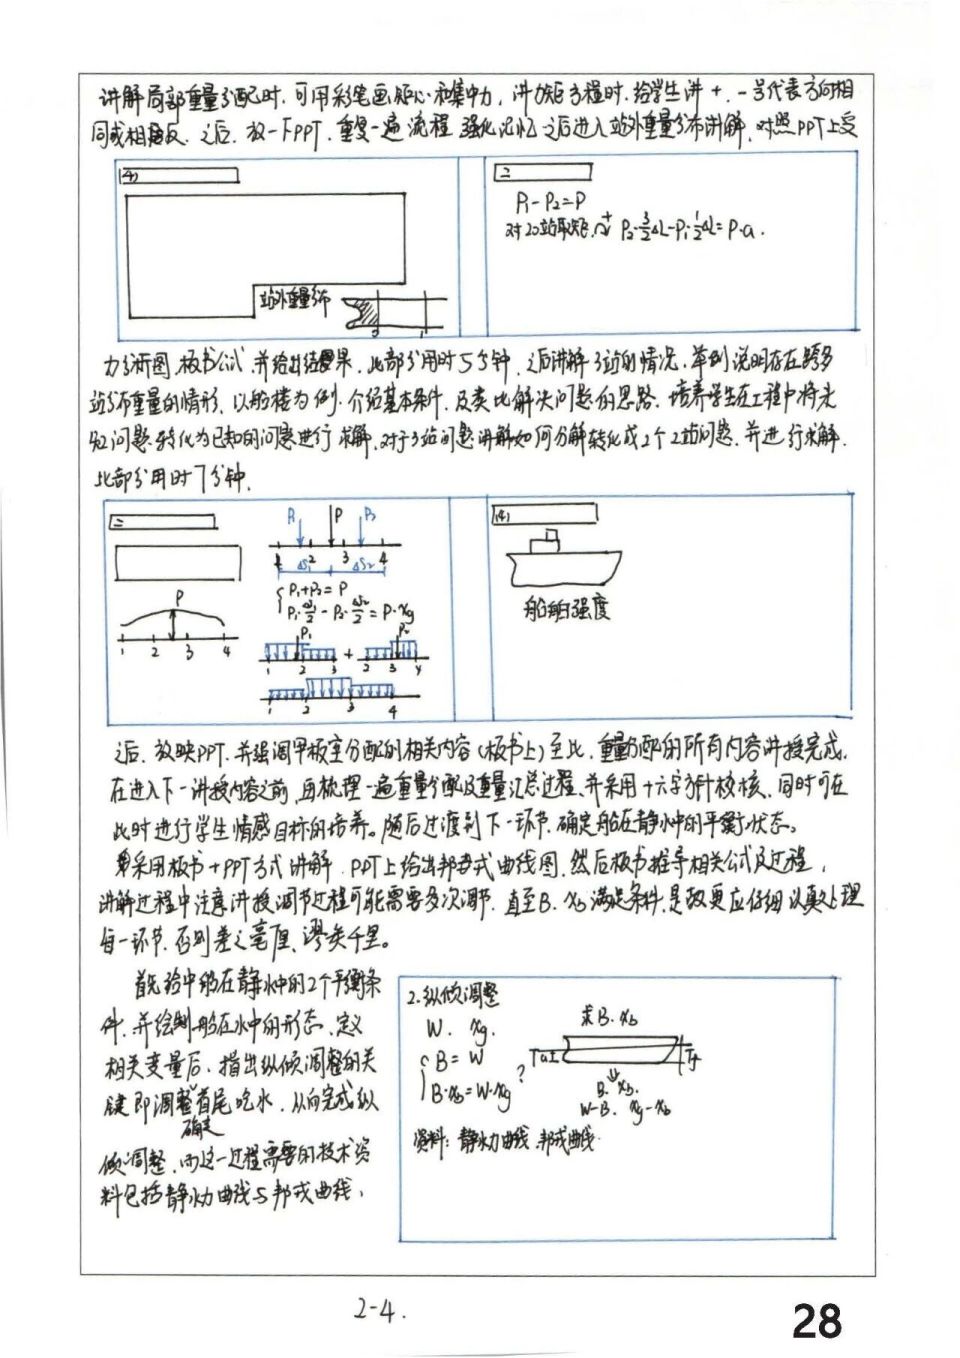 讲解局部重量分配时,可用彩笔画矩心和集中力,讲力矩方程时,给学生讲+、-号代表方向相
同或相反.之后,放一下PPT,重复一遍流程,强化记忆.之后进入站外重量分布讲解,对照PPT上受
(4)
站外重量分布
二
P₁-P₂=P
对1.0站取矩 P₂·3/2ΔL-P₁·1/2ΔL=P·a.
力分析图,板书公式,并给出结果,此部分用时5分钟,之后讲解3站的情况.举例说明存在跨多
站分布重量的情形,以船楼为例,介绍基本条件,及类比解决问题的思路,培养学生在工程中将未
知问题转化为已知的问题进行求解,对于3站问题讲解如何分解转化成2个2站问题,并进行求解.
此部分用时7分钟.
二
P
1 2 3 4
P₁ P P₂
1 2 3 4
P₁+P₂=P
1 2 3 + 2 3 4
1 2 3 4
(4)
船舶强度
之后,放映PPT,并强调甲板室分配的相关内容(板书上)至此,重量分配的所有内容讲授完成.
在进入下一讲授内容之前,再梳理一遍重量分配及重量汇总过程,并采用十六字方针校核,同时可在
此时进行学生情感目标的培养。随后过渡到下一环节,确定船在静水中的平衡状态。
采用板书+PPT方式讲解,PPT上给出邦戎式曲线图,然后板书推导相关公式及过程,
讲解过程中注意讲授调节过程可能需要多次调节,直至B、Xb满足条件,是故更应仔细认真处理
每一环节,否则差之毫厘,谬矣千里。
首先给中船在静水中的2个平衡条
件,并绘制船在水中的形态,定义
相关变量后,指出纵倾调整的关
键即调整首尾吃水,从而完成纵
确定
倾调整,而这一过程需要的技术资
料包括静水力曲线与邦戎曲线,
2.纵倾调整
W. Xg.
B=W
B·Xb=W·Xg
?
求B、Xb
B. Xb.
W-B. Xg-Xb
资料:静水力曲线.邦戎曲线.
2-4.
28